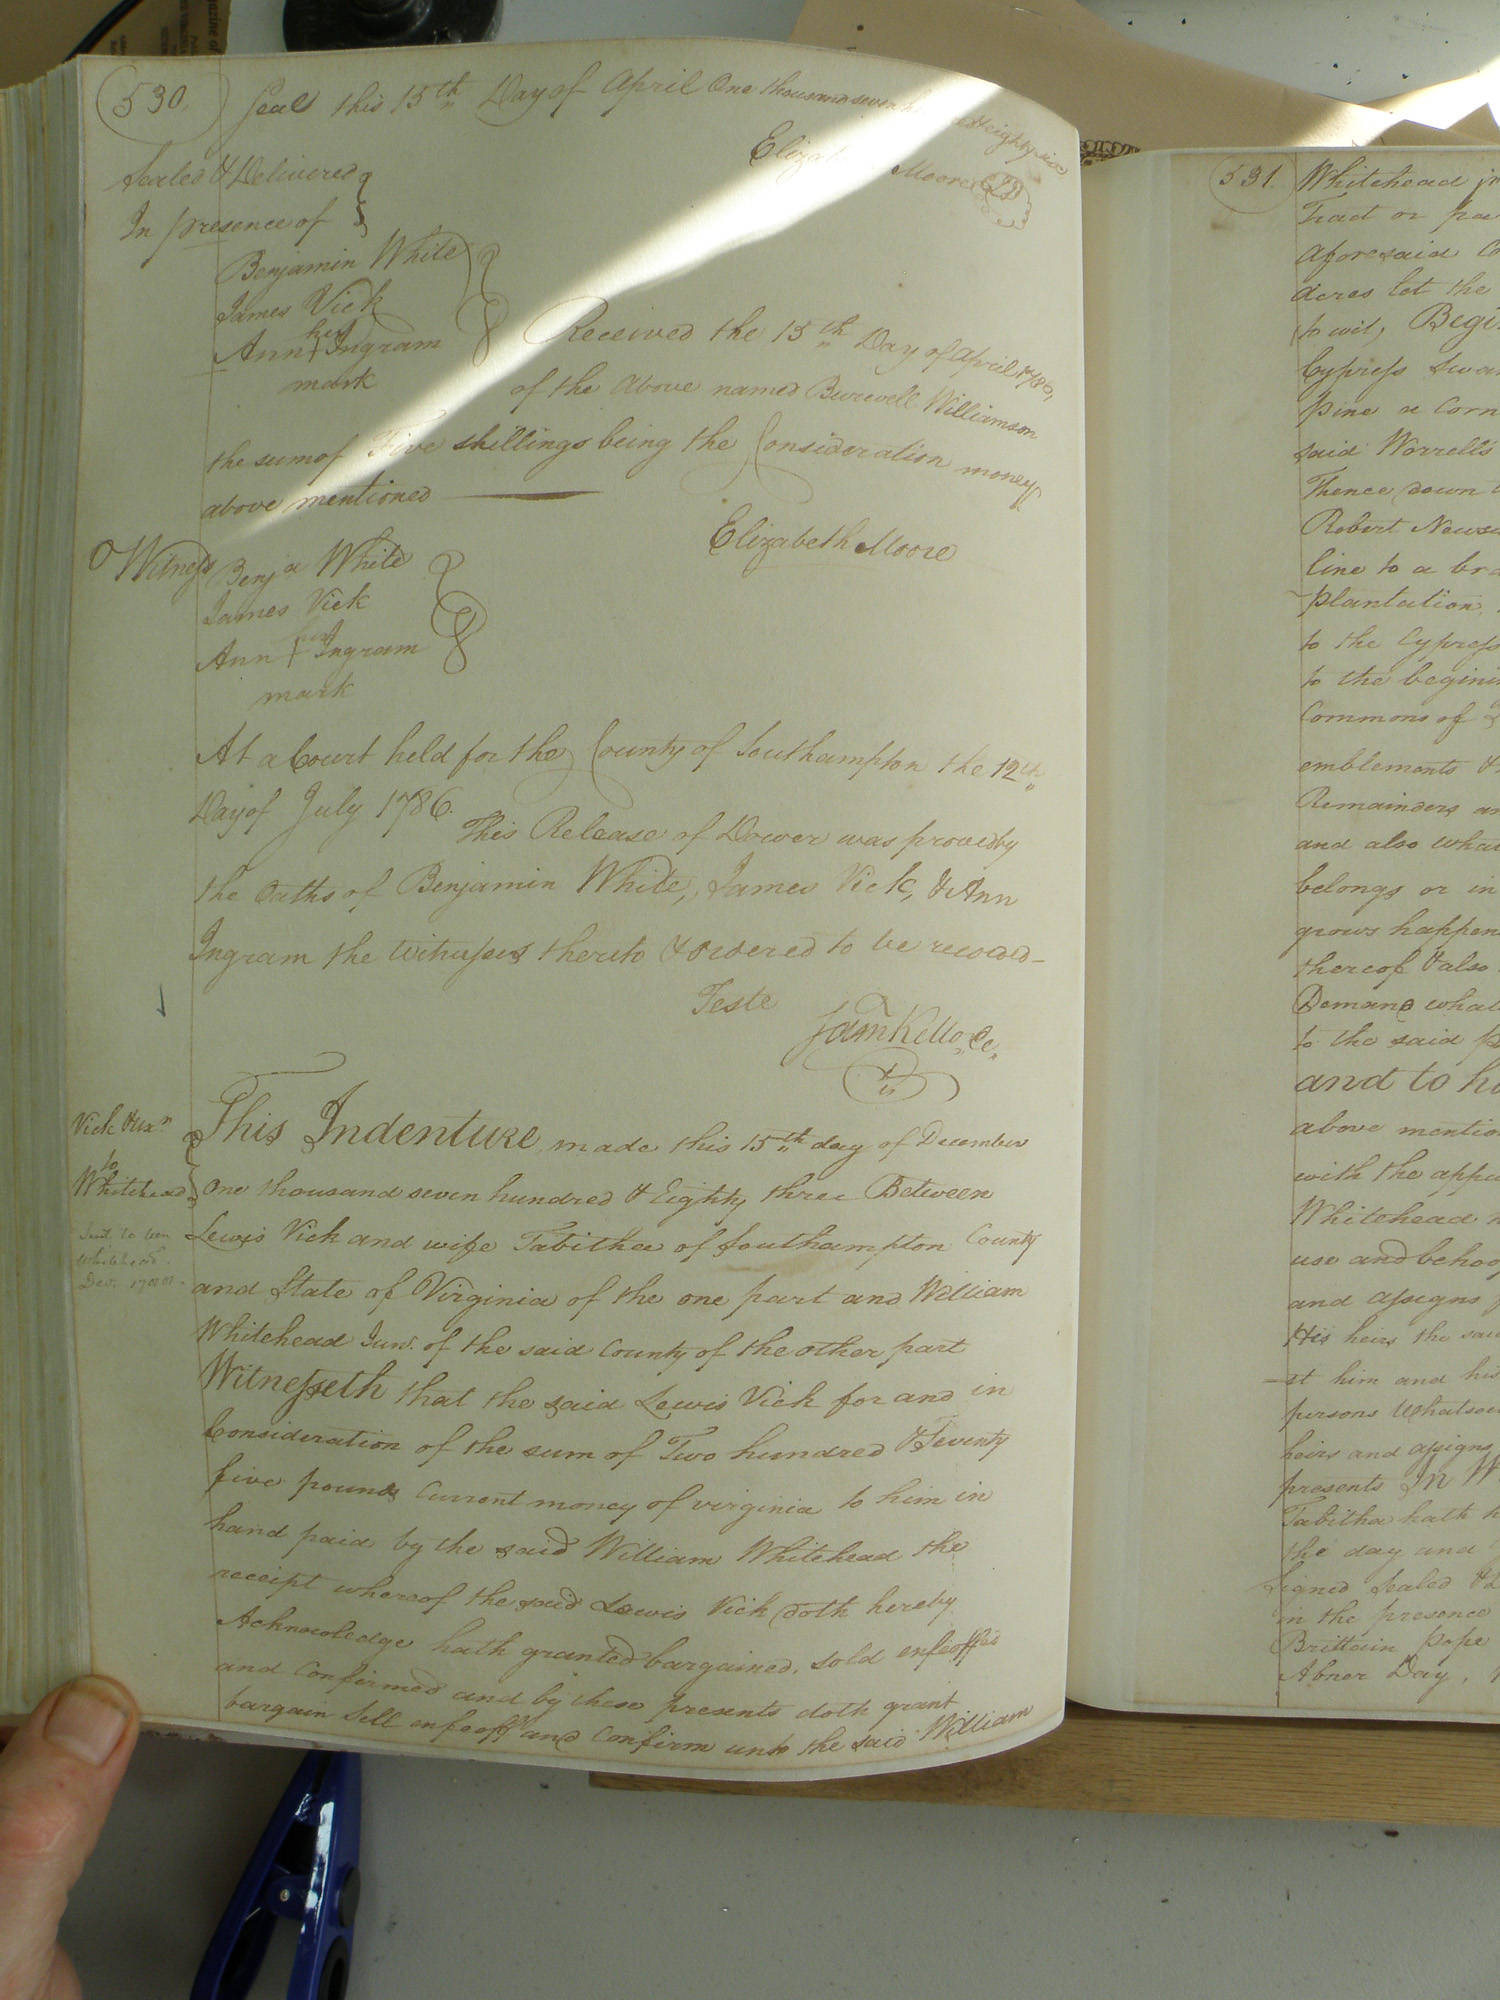 530.
Seal this 15th Day of April One thousand seven Eighty six
Elizabeth Moore LS
Sealed & Delivered
In presence of
Benjamin White
James Vick
her
Ann + Ingram
mark
Received the 15th Day of April 1786,
of the above named Burwell Williamson
the sum of Five shillings being the Consideration money
above mentioned
Elizabeth Moore
Witness Benja White
James Vick
her
Ann + Ingram
mark
At a Court held for the County of Southampton the 12th
Day of July 1786.
This Release of Dower was proved by
the Oaths of Benjamin White, James Vick, & Ann
Ingram the Witnesses thereto & ordered to be recorded
Teste
Sam Kello, Cc,
Vick & Uxr
to
Whitehead
Whitehead
This Indenture made this 15th day of December
One thousand seven hundred & Eighty three Between
Lewis Vick and wife Tabitha of Southampton County
and State of Virginia of the one part and William
Whitehead Junr. of the said County of the other part
Witnesseth that the said Lewis Vick for and in
Consideration of the sum of Two hundred & Seventy
five pounds Current money of virginia to him in
hand paid by the said William Whitehead the
receipt whereof the said Lewis Vick doth hereby
Acknowledge hath granted bargained, sold enfeoffed
and Confirmed and by these presents doth grant
bargain Sell enfeoff and Confirm unto the said William
531.
Whitehead
Tract or
aforesaid
acres let the
to wit, Begi
Cypress Swa
pine a Corn
said Worrell's
Thence down
Robert News
line to a br
plantation
to the Cypress
to the begin
Commons of
emblements
Remainders
and also what
belongs or in
grows happen
thereof & also
Demand what
to the said
and to h
above mentio
with the app
Whitehead
use and behoof
and assigns
His heirs the
st him and his
persons Whatso
heirs and assigns
presents In W
Tabitha hath
the day and
Signed Sealed &
in the presence
Brittain Pope
Abner Day,